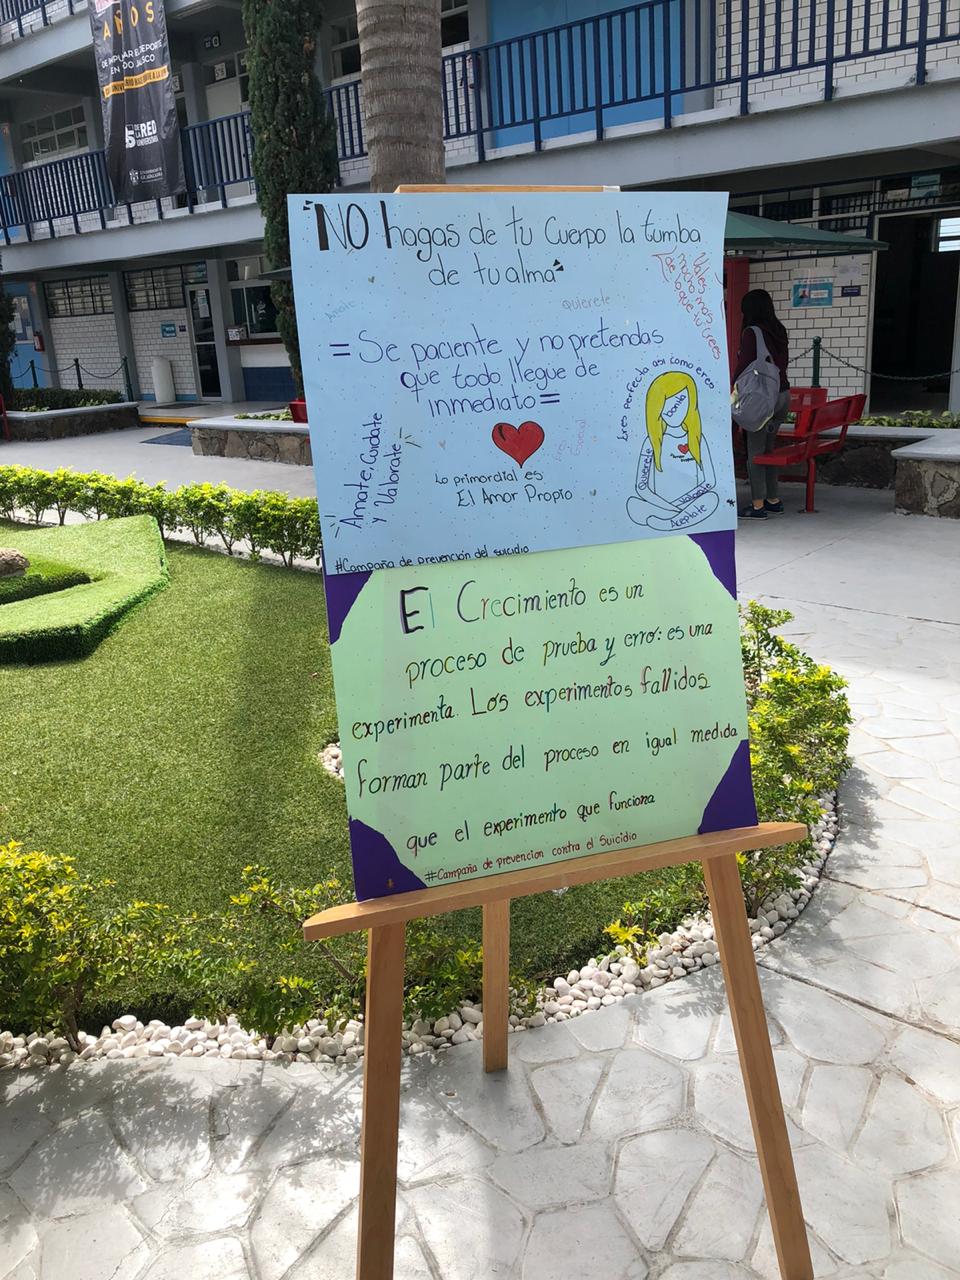 AÑOS
DE IMPULSAR EL DEPORTE
EN TODO JALISCO
DE LA RED
UNIVERSITARIA
"NO hagas de tu Cuerpo la tumba
de tu alma"
Amate
quierete
Vales
mucho mas
de lo que tu crees
= Se paciente y no pretendas
que todo llegue de
inmediato =
Amate, Cuidate
y Valorate
Eres
Especial
Lo primordial es
El Amor Propio
Eres perfecta asi como eres
bonita
Quierete
Amor
Propio
Valorate
Aceptate
#Campaña de prevención del suicidio
El Crecimiento es un
proceso de prueba y error: es una
experimenta. Los experimentos fallidos
forman parte del proceso en igual medida
que el experimento que funciona
#Campaña de prevencion contra el Suicidio